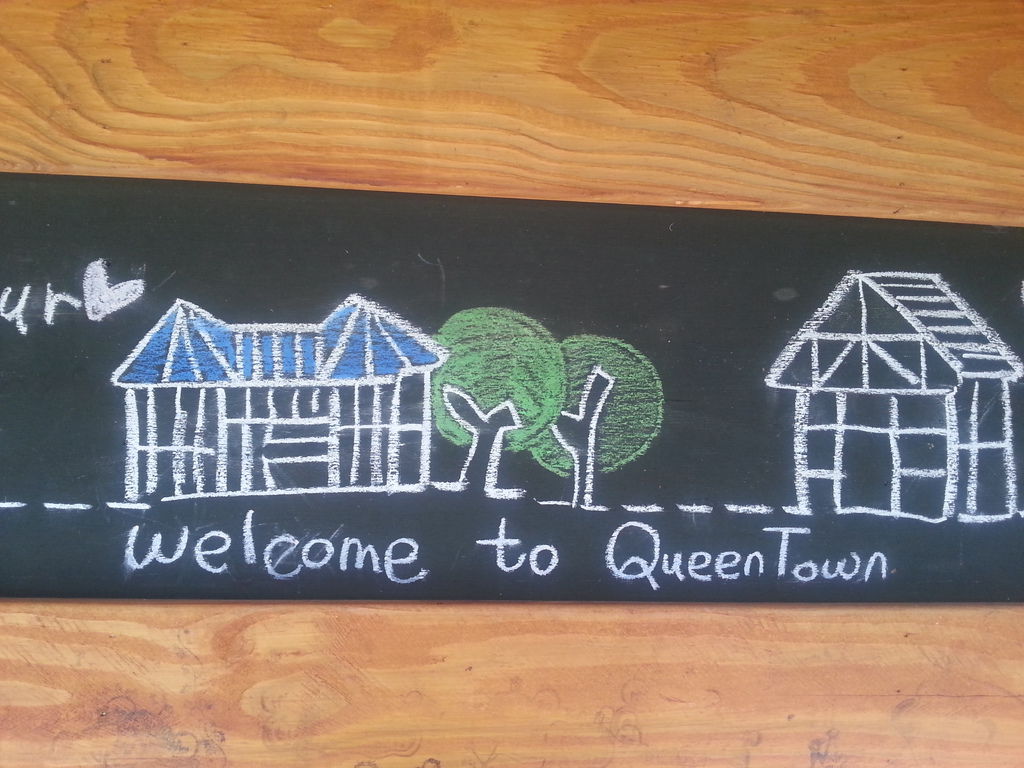 ur
welcome to QueenTown